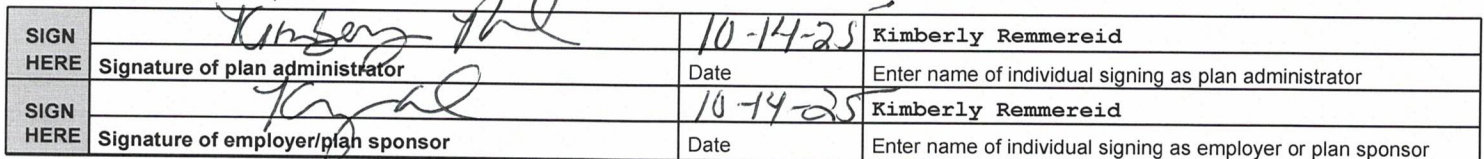 SIGN HERE
Kimberly 10-14-25 Kimberly Remmereid
Signature of plan administrator Date Enter name of individual signing as plan administrator
SIGN HERE
10-14-25 Kimberly Remmereid
Signature of employer/plan sponsor Date Enter name of individual signing as employer or plan sponsor